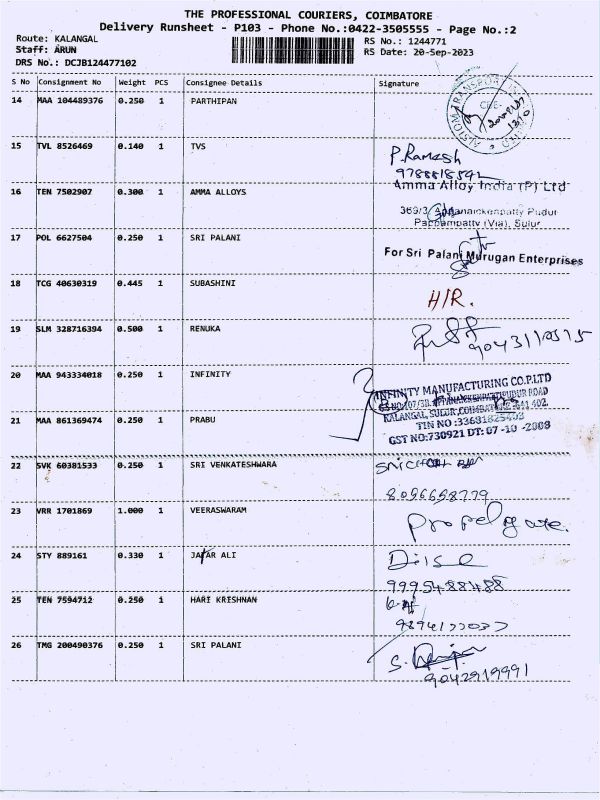 THE PROFESSIONAL COURIERS, COIMBATORE
Delivery Runsheet - P103 - Phone No.:0422-3505555 - Page No.:2
Route: KALANGAL
RS No.: 1244771
Staff: ARUN
RS Date: 20-Sep-2023
DRS No.: DCJB124477102
S No Consignment No Weight PCS Consignee Details Signature
14 MAA 104489376 0.250 1 PARTHIPAN
15 TVL 8526469 0.140 1 TVS
P. Ramesh
16 TEN 7502907 0.300 1 AMMA ALLOYS
Amma Alloy India (P) Ltd
Pappampatty (Via), Sulur
17 POL 6627504 0.250 1 SRI PALANI
For Sri Palani Murugan Enterprises
18 TCG 40630319 0.445 1 SUBASHINI
H/R.
19 SLM 328716394 0.500 1 RENUKA
20 MAA 943334018 0.250 1 INFINITY
INFINITY MANUFACTURING CO.P.LTD
21 MAA 861369474 0.250 1 PRABU
GST NO:730921 DT: 07-10-2008
22 SVK 60381533 0.250 1 SRI VENKATESHWARA
8096698779
23 VRR 1701869 1.000 1 VEERASWARAM
Propel gate.
24 STY 889161 0.330 1 JAFAR ALI
9995488488
25 TEN 7594712 0.250 1 HARI KRISHNAN
26 TMG 200490376 0.250 1 SRI PALANI
9042919991